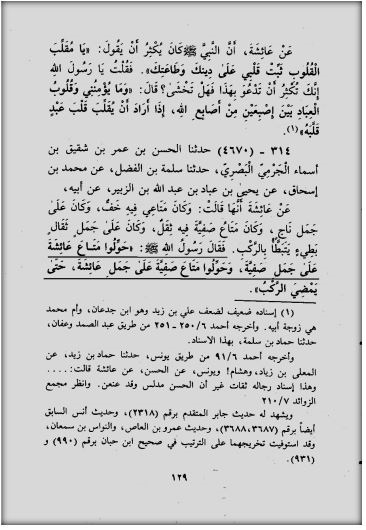 عَنْ عَائِشَةَ، أَنَّ النَّبِيَّ ﷺ كَانَ يُكْثِرُ أَنْ يَقُولَ: «يَا مُقَلِّبَ
الْقُلُوبِ ثَبِّتْ قَلْبِي عَلَىٰ دِينِكَ وَطَاعَتِكَ». فَقُلْتُ يَا رَسُولَ اللهِ
إِنَّكَ تُكْثِرُ أَنْ تَدْعُوَ بِهٰذَا فَهَلْ تَخْشَىٰ؟ قَالَ: «وَمَا يُؤْمِنُنِي وَقُلُوبُ
الْعِبَادِ بَيْنَ إِصْبَعَيْنِ مِنْ أَصَابِعِ اللهِ، إِذَا أَرَادَ أَنْ يُقَلِّبَ قَلْبَ عَبْدٍ
قَلَّبَهُ»(١).
٣١٤ - (٤٦٧٠) حدثنا الحسن بن عمر بن شقيق بن
أسماء الْجَرْمِيّ الْبَصْرِيّ، حدثنا سلمة بن الفضل، عن محمد بن
إسحاق، عن يحيىٰ بن عباد بن عبد الله بن الزبير، عن أبيه،
عَنْ عَائِشَةَ أَنَّهَا قَالَتْ: وَكَانَ مَتَاعِي فِيهِ خَفٌّ، وَكَانَ عَلَىٰ
جَمَلٍ نَاجٍ، وَكَانَ مَتَاعُ صَفِيَّةَ فِيهِ ثِقَلٌ، وَكَانَ عَلَىٰ جَمَلٍ ثَقَالٍ
بَطِيءٍ يَتَبَطَّأُ بِالرَّكْبِ. فَقَالَ رَسُولُ اللهِ ﷺ: «حَوِّلُوا مَتَاعَ عَائِشَةَ
عَلَىٰ جَمَلِ صَفِيَّةَ، وَحَوِّلُوا مَتَاعَ صَفِيَّةَ عَلَىٰ جَمَلِ عَائِشَةَ، حَتَّىٰ
يَمْضِيَ الرَّكْبُ».
(١) إسناده ضعيف لضعف علي بن زيد وهو ابن جدعان، وأم محمد
هي زوجة أبيه. وأخرجه أحمد ٢٥٠/٦ - ٢٥١ من طريق عبد الصمد وعفان،
حدثنا حماد بن سلمة، بهذا الاسناد.
وأخرجه أحمد ٩١/٦ من طريق يونس، حدثنا حماد بن زيد، عن
المعلى بن زياد، وهشام! ويونس، عن الحسن، عن عائشة قالت: ....
وهذا إسناد رجاله ثقات غير أن الحسن مدلس وقد عنعن. وانظر مجمع
الزوائد ٢١٠/٧
ويشهد له حديث جابر المتقدم برقم (٢٣١٨)، وحديث أنس السابق
أيضاً برقم (٣٦٨٧، ٣٦٨٨)، وحديث عمرو بن العاص، والنواس بن سمعان،
وقد استوفيت تخريجهما على الترتيب في صحيح ابن حبان برقم (٩٩٠) و
(٩٣١).
١٢٩